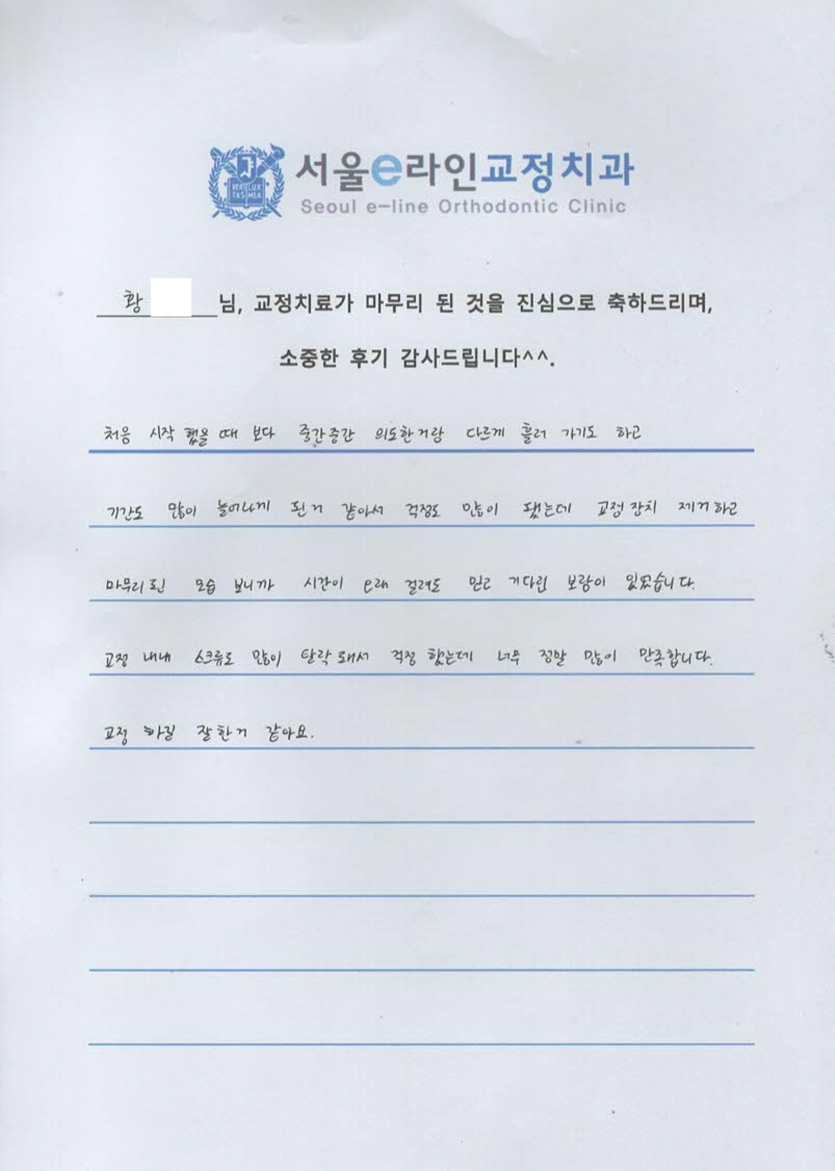 VERI LUX
TAS MEA
서울e라인교정치과
Seoul e-line Orthodontic Clinic
황 님, 교정치료가 마무리 된 것을 진심으로 축하드리며,
소중한 후기 감사드립니다^^.
처음 시작 했을 때 보다 중간중간 의도한거랑 다르게 흘러 가기도 하고
기간도 많이 늘어나게 된거 같아서 걱정도 많이 됐는데 교정장치 제거하고
마무리된 모습 보니까 시간이 오래 걸려도 믿고 기다린 보람이 있었습니다.
교정 내내 스크류도 많이 탈락돼서 걱정 했는데 너무 정말 많이 만족합니다.
교정 하길 잘한거 같아요.